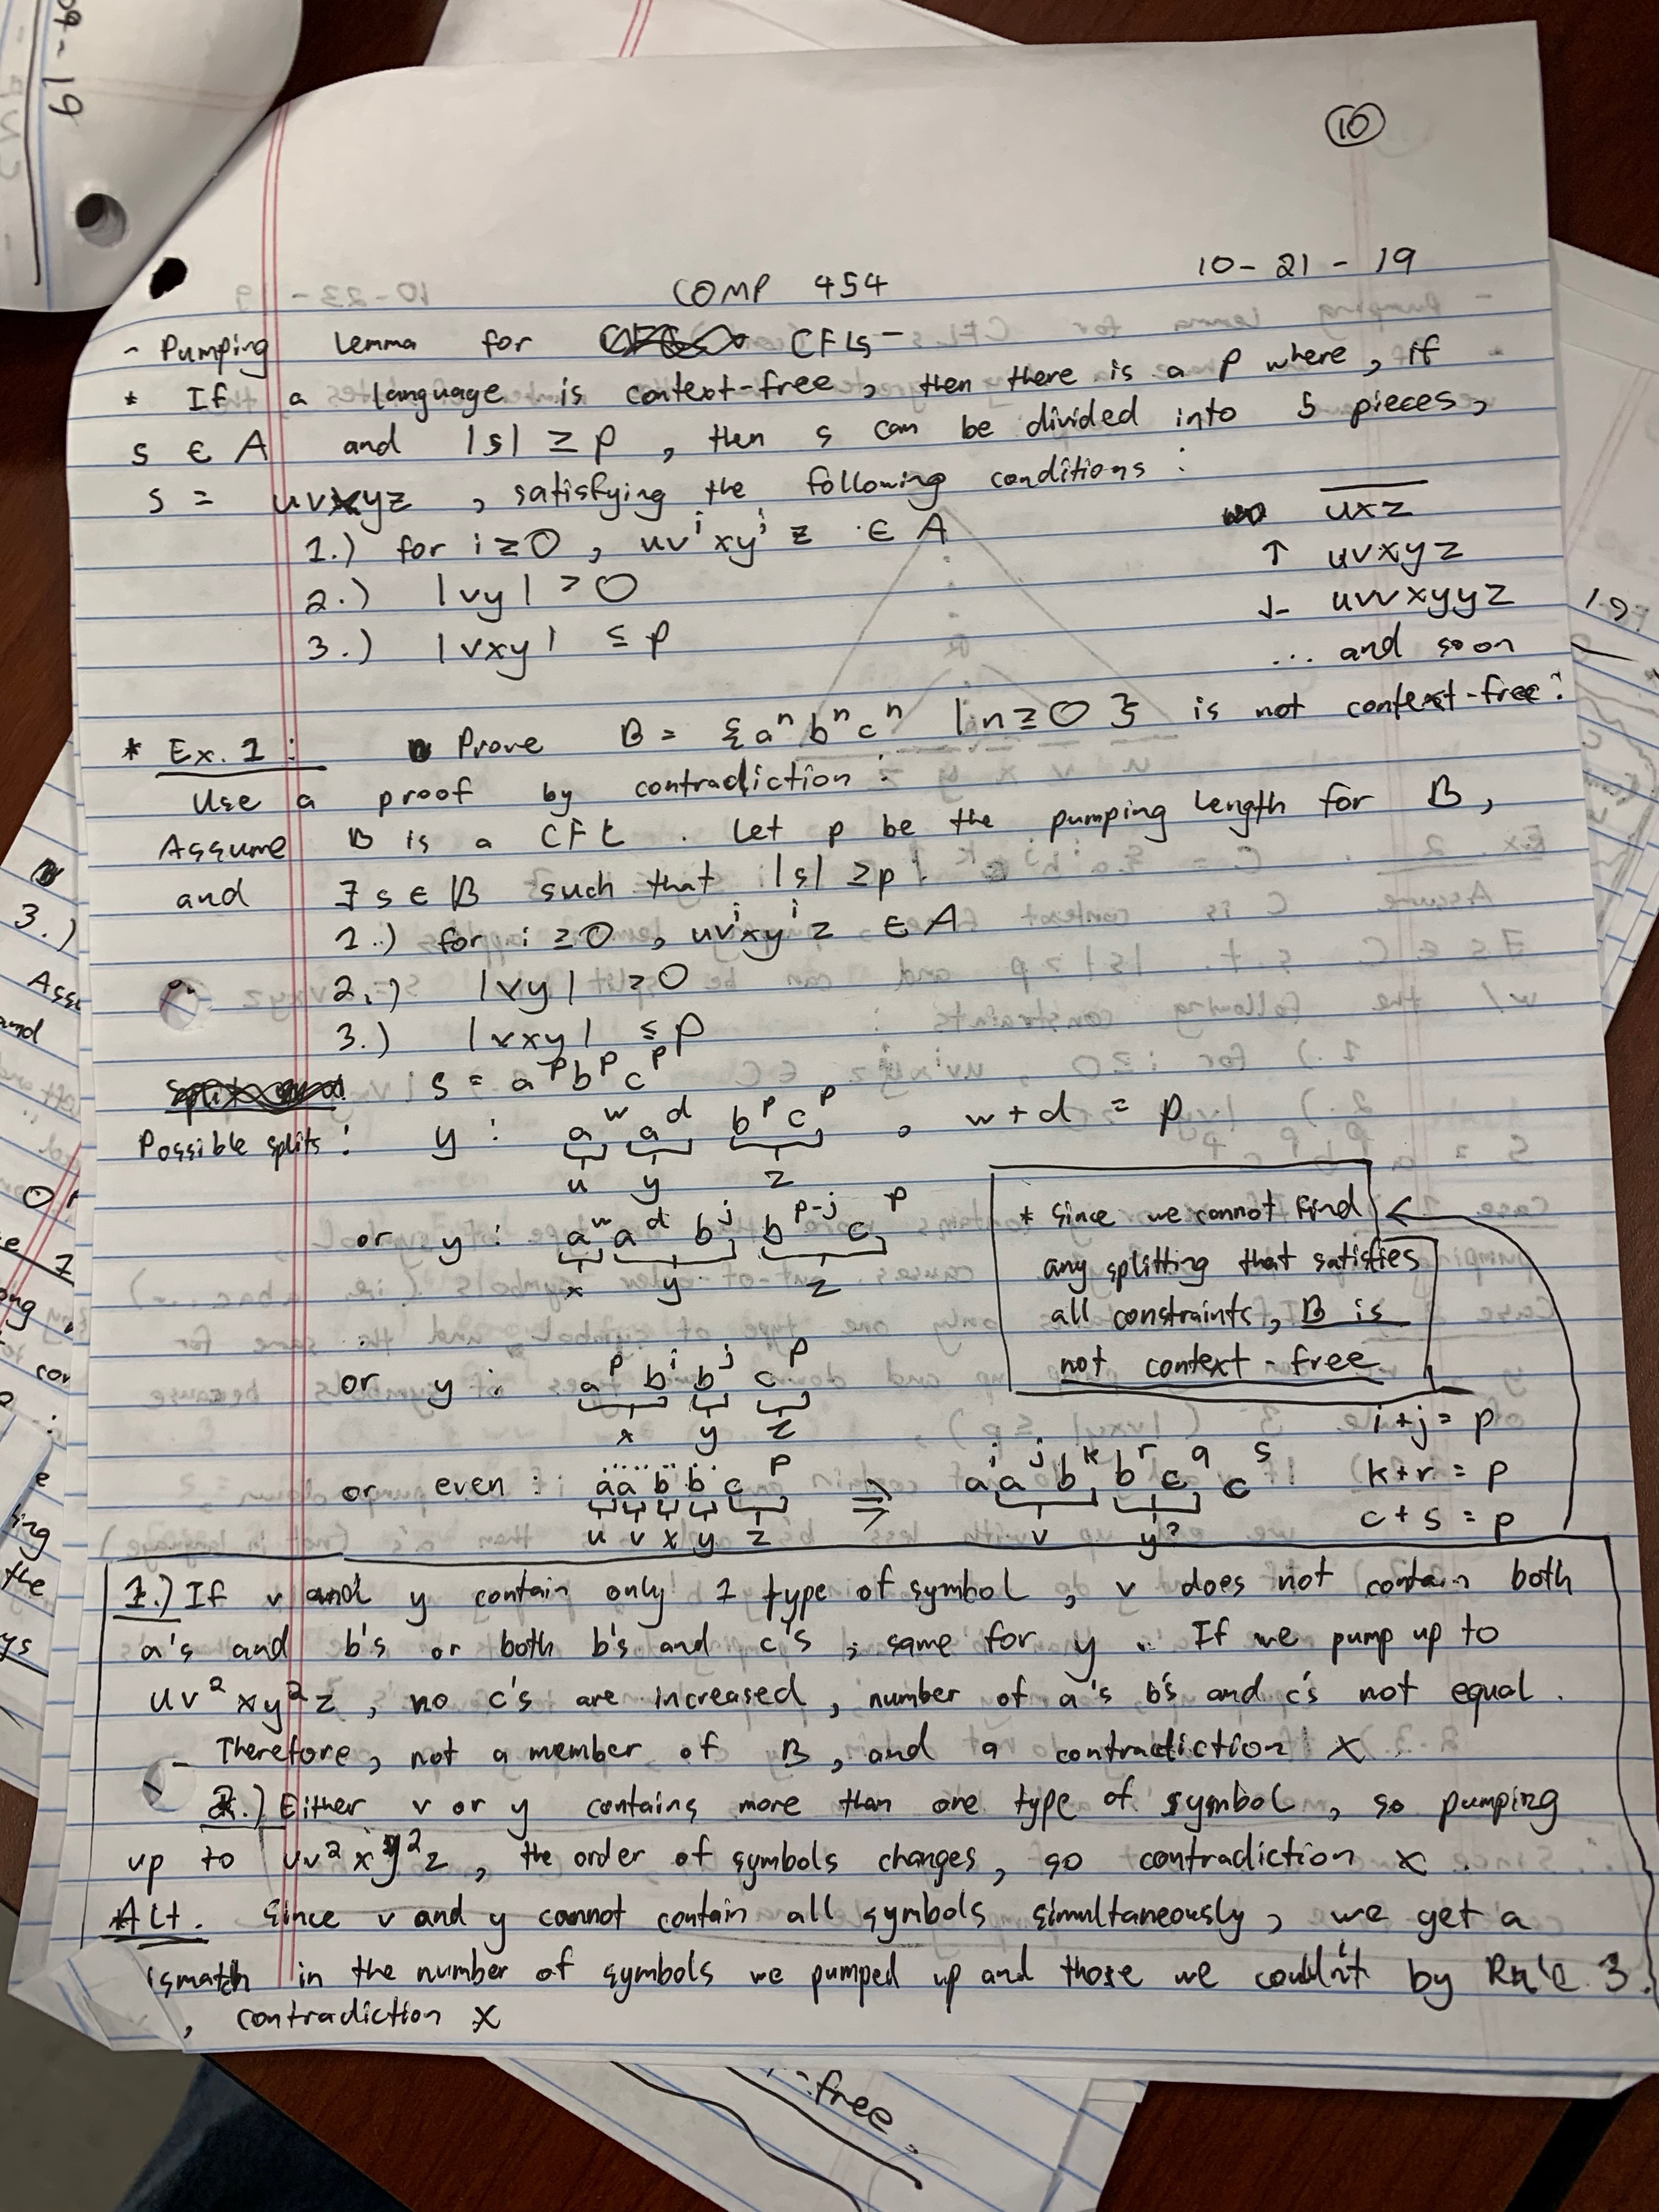 09-19
10
COMP 454
10-21-19
- Pumping Lemma for CFLs -
* If a language is context-free, then there is a p where, if
s ∈ A and |s| ≥ p, then s can be divided into 5 pieces,
s = uvxyz, satisfying the following conditions:
1.) for i≥0, uvⁱxyⁱz ∈ A
2.) |vy| > 0
3.) |vxy| ≤ p
uxz
↑ uvxyz
↓ uvvxyyz
... and so on
* Ex. 1: Prove B = {aⁿbⁿcⁿ | n≥0} is not context-free:
Use a proof by contradiction:
Assume B is a CFL. Let p be the pumping length for B,
and ∃ s ∈ B such that |s| ≥ p.
1.) for i ≥0, uvⁱxyⁱz ∈ A
2.) |vy| >0
3.) |vxy| ≤ p
s = aᵖbᵖcᵖ
Possible splits: y: aʷ aᵈ bᵖcᵖ, w+d = p
u y z
or y: aʷ aᵈ bʲ bᵖ⁻ʲ cᵖ
x y z
or y: aᵖ bⁱ bʲ cᵖ
x y z
or even: aabbcᵖ ⇒ aⁱ aʲ bᵏ bʳ c^q cˢ
u v x y z v y?
* Since we cannot find
any splitting that satisfies
all constraints, B is
not context-free
i+j = p
k+r = p
c+s = p
1.) If v and y contain only 1 type of symbol, v does not contain both
a's and b's or both b's and c's, same for y. If we pump up to
uv²xy²z, no c's are increased, number of a's b's and c's not equal.
- Therefore, not a member of B, and a contradiction X
2.) Either v or y contains more than one type of symbol, so pumping
up to uv²xy²z, the order of symbols changes, so contradiction X.
*Alt. Since v and y cannot contain all symbols simultaneously, we get a
in the number of symbols we pumped up and those we couldn't by Rule 3.
, contradiction X
3.)
and
the
-free.